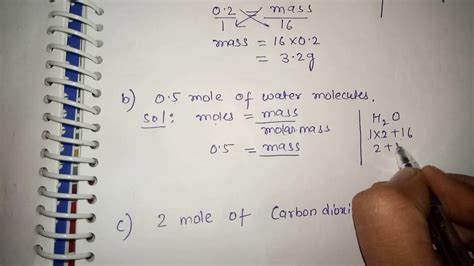 0.2 = mass
1 16
mass = 16 x 0.2
= 3.2g
b) 0.5 mole of water molecules.
Sol: moles = mass
molar mass
0.5 = mass
H2O
1x2+16
2+1
c) 2 mole of Carbon dioxi